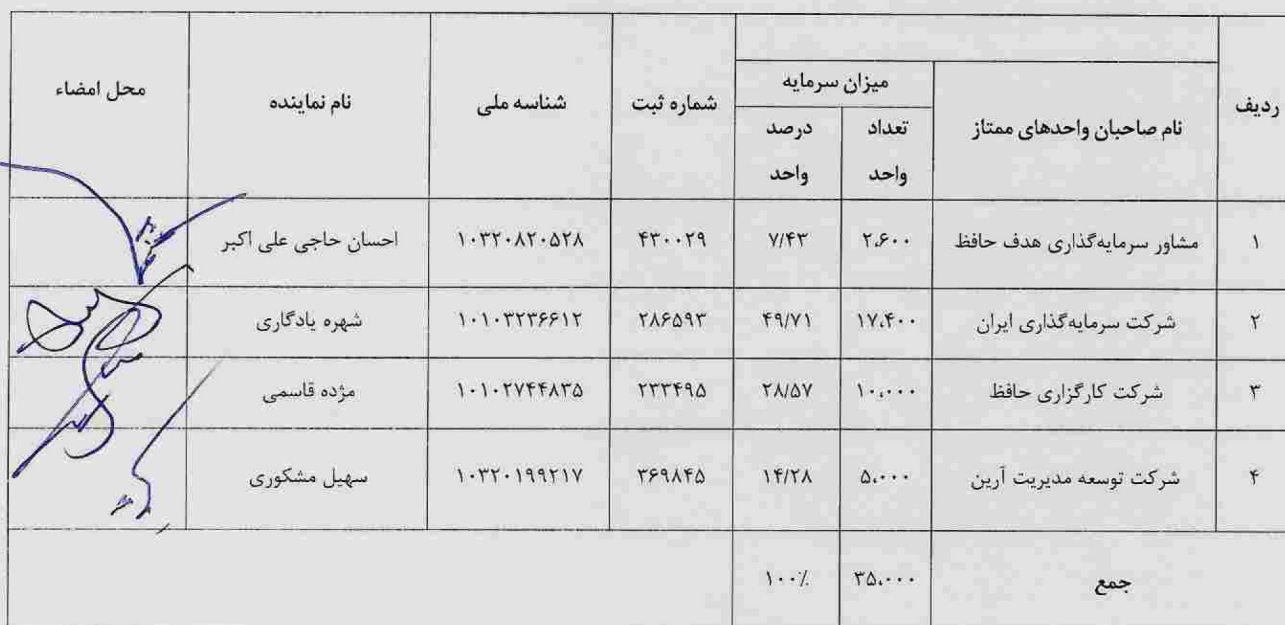 ردیف نام صاحبان واحدهای ممتاز میزان سرمایه شماره ثبت شناسه ملی نام نماینده محل امضاء
تعداد واحد درصد واحد
۱ مشاور سرمایه‌گذاری هدف حافظ ۲،۶۰۰ ۷/۴۳ ۴۳۰۰۲۹ ۱۰۳۲۰۸۲۰۵۲۸ احسان حاجی علی اکبر
۲ شرکت سرمایه‌گذاری ایران ۱۷،۴۰۰ ۴۹/۷۱ ۲۸۶۵۹۳ ۱۰۱۰۳۲۳۶۶۱۲ شهره یادگاری
۳ شرکت کارگزاری حافظ ۱۰،۰۰۰ ۲۸/۵۷ ۲۳۳۴۹۵ ۱۰۱۰۲۷۴۴۸۳۵ مژده قاسمی
۴ شرکت توسعه مدیریت آرین ۵،۰۰۰ ۱۴/۲۸ ۳۶۹۸۴۵ ۱۰۳۲۰۱۹۹۲۱۷ سهیل مشکوری
جمع ۳۵،۰۰۰ ۱۰۰٪